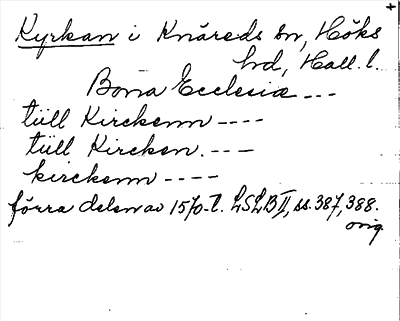 Kyrkan i Knäreds sn, Höks
hd, Hall. l.
Bona Ecclesiæ ---
tüll Kirckenn ----
tüll Kircken. ---
kirckenn ----
förra delen av 1570-t. LSLB II, ss. 387, 388.
orig.